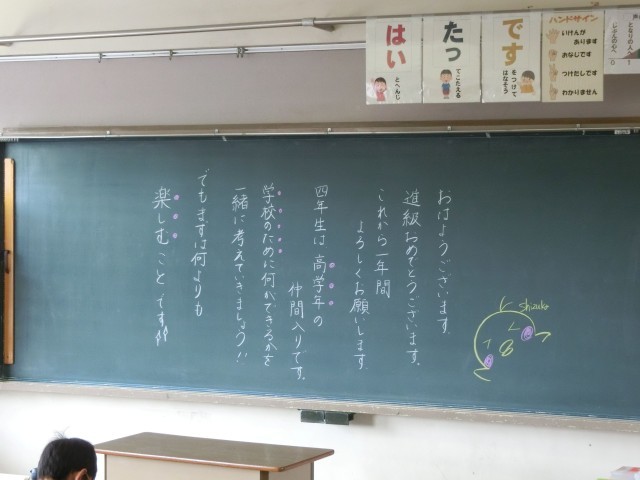 おはようございます。
進級おめでとうございます。
これから一年間
よろしくお願いします。
四年生は高学年の
仲間入りです。
学校のために何ができるかを
一緒に考えていきましょう!!
でもまずは何よりも
楽しむことです!!
shizuko
はい
とへんじ
たっ
てこたえる
です
をつけて
はなそう
ハンドサイン
いけんが
あります
おなじです
つけたしです
わかりません
となりの人へ